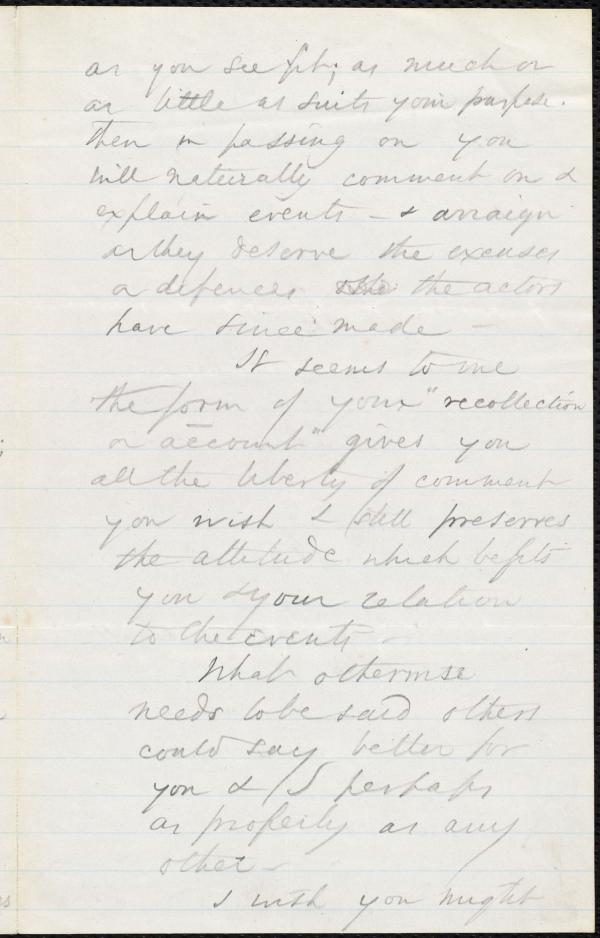 as you see fit; as much or
as little as suits your purpose.
Then in passing on you
will naturally comment on &
explain events — & arraign
as they deserve the excuses
or defences the actors
have since made —
It seems to me
the form of your "recollection
or account" gives you
all the liberty of comment
you wish & still preserves
the attitude which befits
you & your relation
to the events —
What otherwise
needs to be said others
could say better for
you & I perhaps
as properly as any
other —
I wish you might